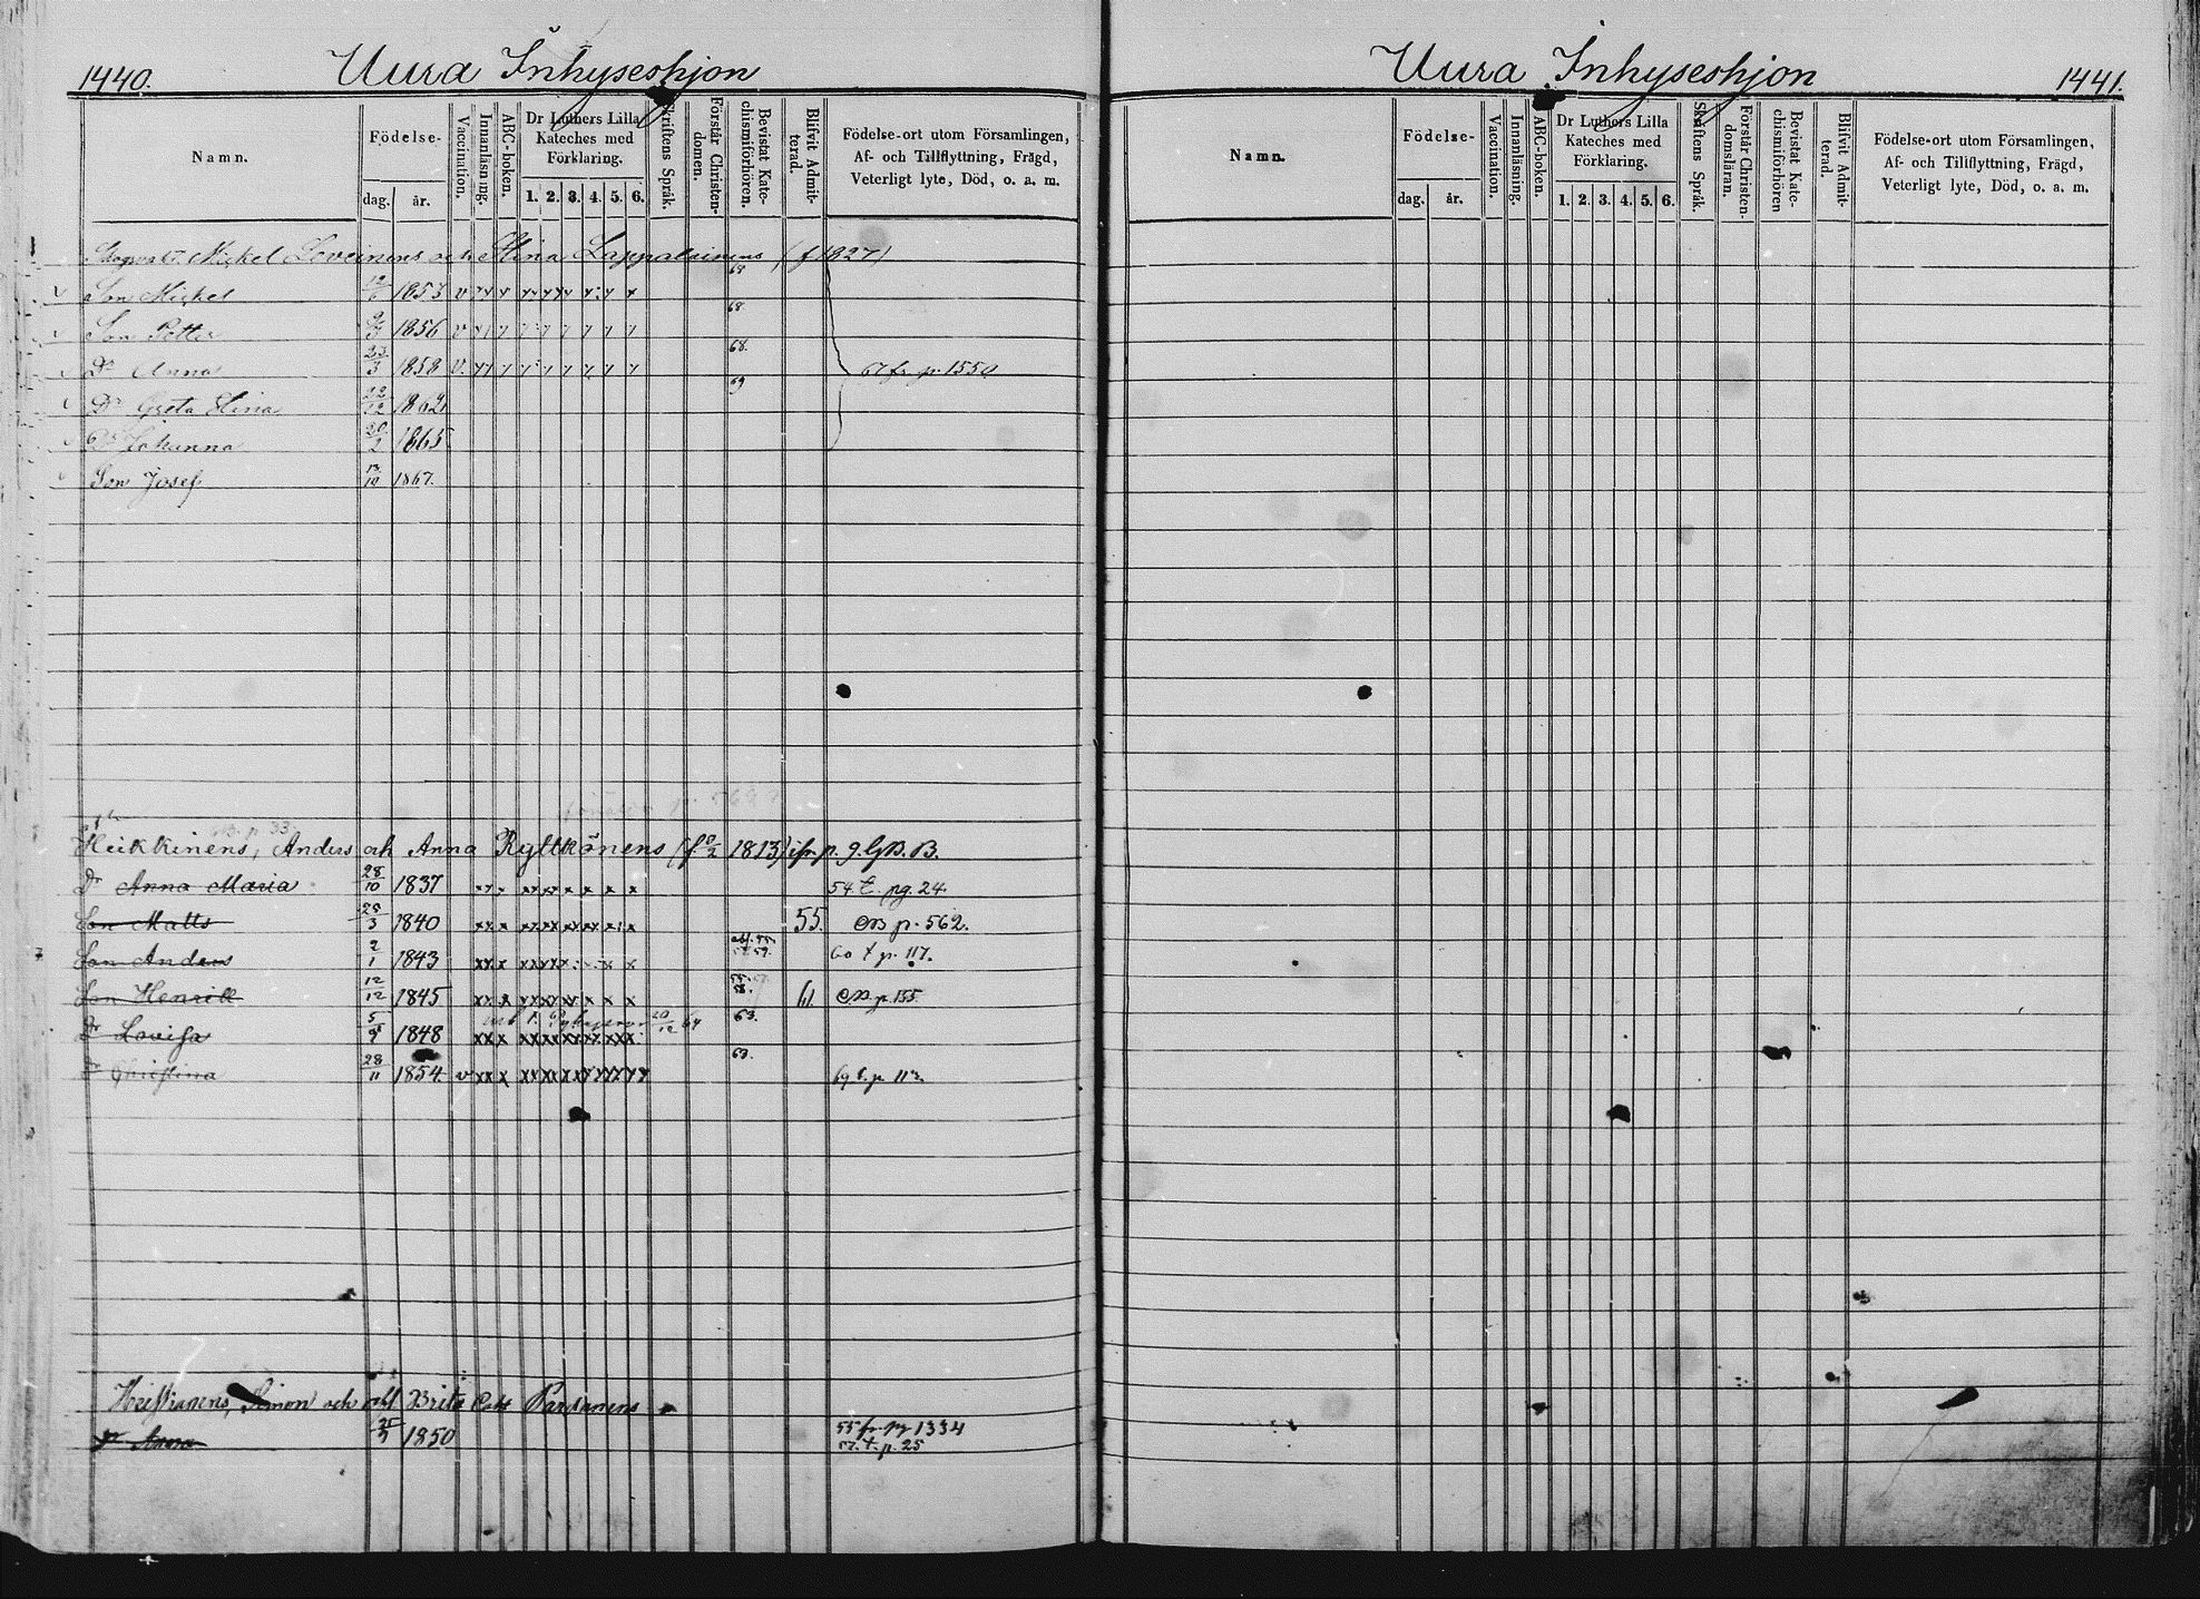 1440. Uura Inhyseshjon
Namn.
Födelse-
dag. år.
Vaccination.
Innanläsning.
ABC-boken.
Dr Luthers Lilla
Kateches med
Förklaring.
1. 2. 3. 4. 5. 6.
Skriftens Språk.
Förstår Christen-
domen.
Bevistat Kate-
chismiförhören.
Blifvit Admit-
terad.
Födelse-ort utom Församlingen,
Af- och Tillflyttning, Frägd,
Veterligt lyte, Död, o. a. m.
Mickel och Stina Lappalainens (f 1827)
Son Mickel 1853 v 68
Son Petter 1856 v 68.
Dr Anna 23/3 1858 v. 68. 67 fr. p. 1550
Dr Greta Stina 22/12 1862 69
Dr Johanna 20/2 1865
Son Josef 13/10 1867.
Heikkinens, Anders och Anna Rytkönens 1813) p. 9. B.
Dr Anna Maria 28/10 1837 54 t. pg. 24.
Son Matts 25/3 1840 55. p. 562.
Son Anders 2/1 1843 60 t p. 117.
Son Henrik 12/12 1845 61. p. 155
Dr Lovisa 1848 20/12 64 63.
Dr Christina 28/11 1854 v 63. 69 t. p.
Simon och Brita Parsanens
Anna 1850 55 fr. pg 1334
57. t. p. 25
Uura Inhyseshjon 1441.
Namn.
Födelse-
dag. år.
Vaccination.
Innanläsning.
ABC-boken.
Dr Luthers Lilla
Kateches med
Förklaring.
1. 2. 3. 4. 5. 6.
Skriftens Språk.
Förstår Christen-
domsläran.
Bevistat Kate-
chismiförhören
Blifvit Admit-
terad.
Födelse-ort utom Församlingen,
Af- och Tillflyttning, Frägd,
Veterligt lyte, Död, o. a. m.